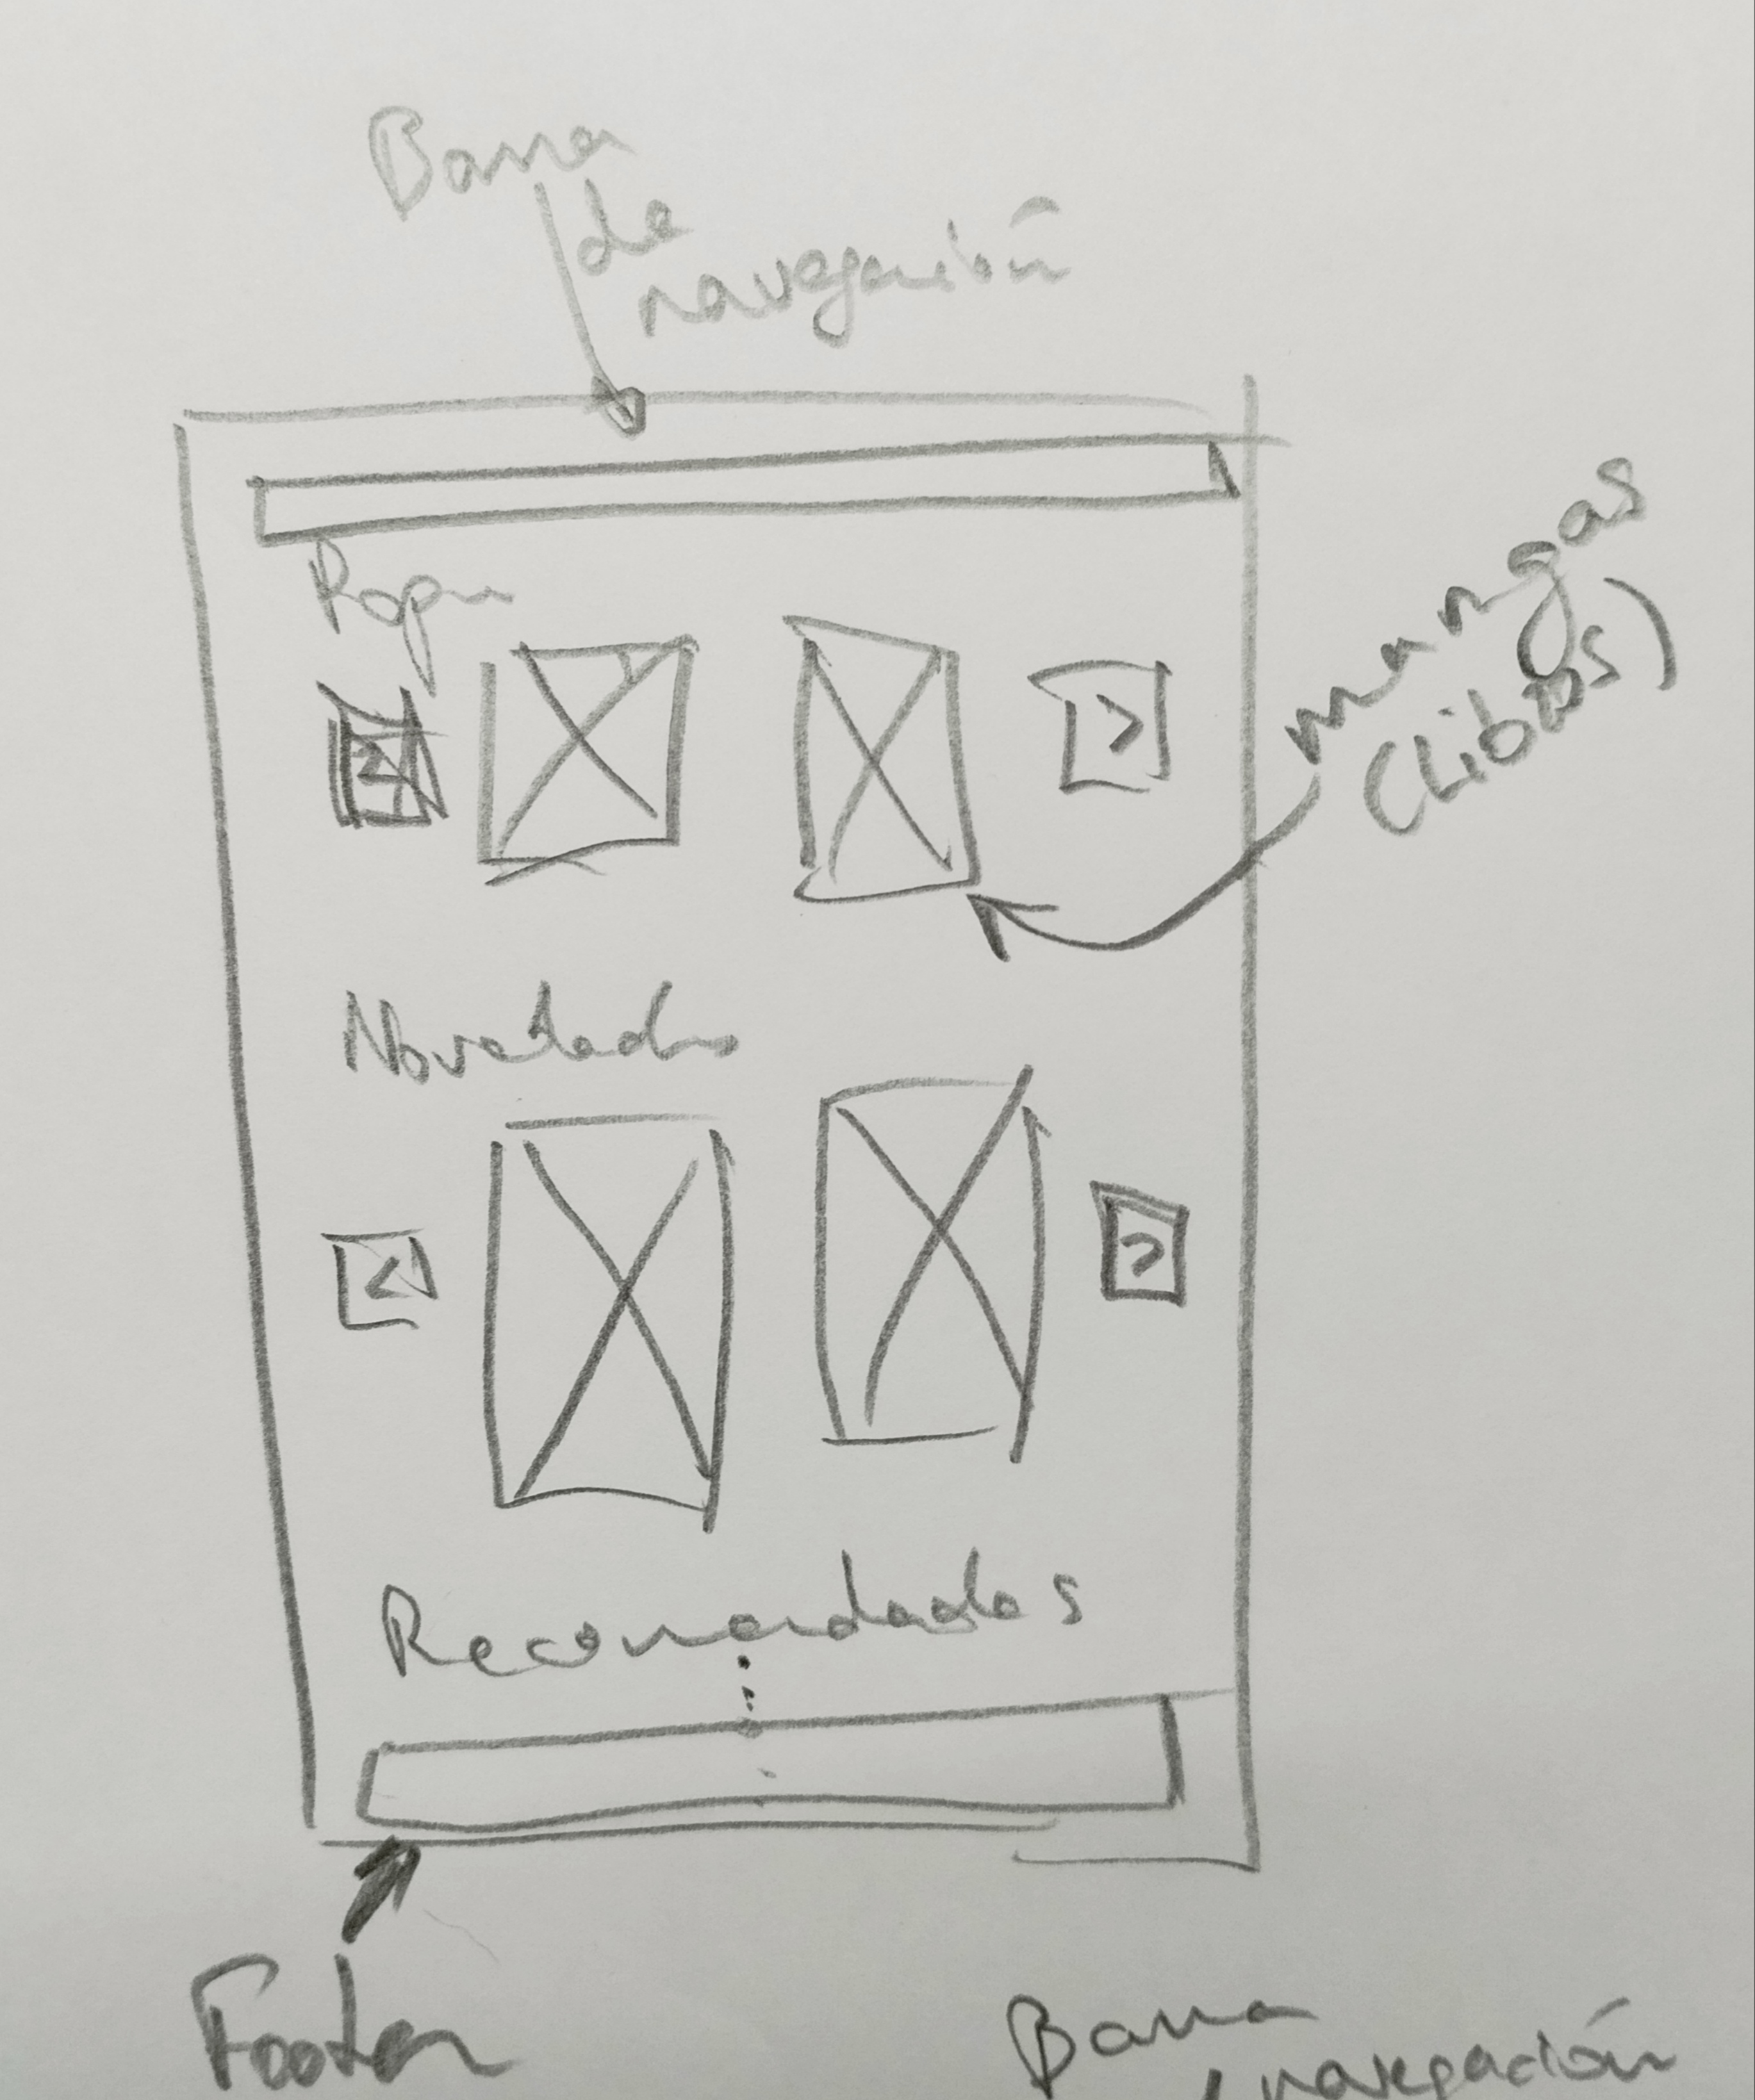 Barra
de
navegación
Popu
>
mangas
(Libros)
Novedades
<
>
Recomendados
Footer
Barra
navegación